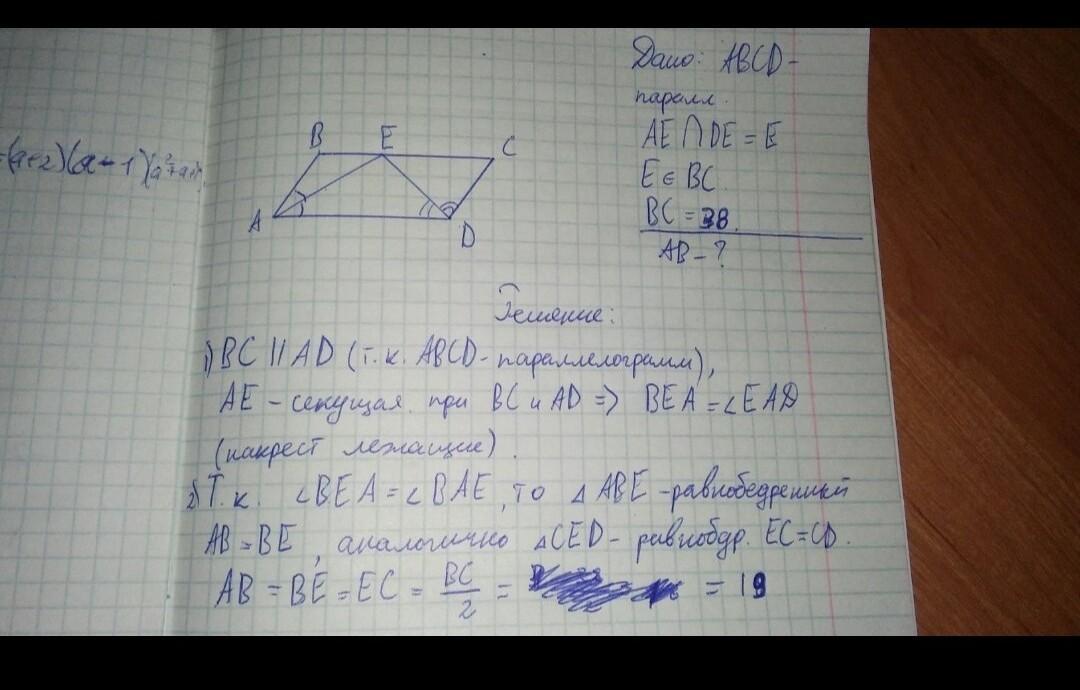 =(a+2)(a-1)(a²+a+1)
B E C
A D
Дано: ABCD-
паралл.
AE∩DE = E
E ∈ BC
BC = 38.
AB - ?
Решение:
1) BC || AD (т.к. ABCD - параллелограмм),
AE - секущая при BC и AD => BEA = ∠EAD
(накрест лежащие).
2) Т.к. ∠BEA = ∠BAE, то △ABE - равнобедренный
AB = BE, аналогично △CED - равнобдр. EC = CD.
AB = BE = EC = BC/2 = = 19